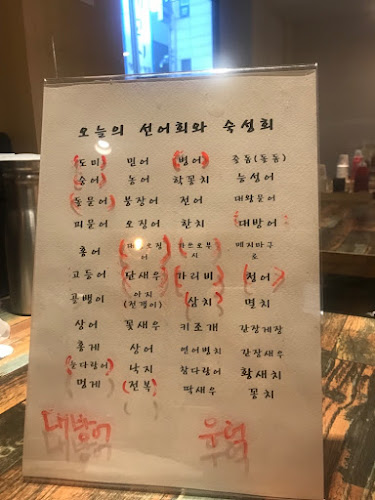 오늘의 선어회와 숙성회
도미 민어 병어 줄돔(돌돔)
숭어 농어 학꽁치 능성어
돌문어 붕장어 전어 대왕문어
피문어 오징어 한치 대방어
홍어 가쓰오부시 메지마구로
고등어 단새우 가리비 청어
골뱅이 아지(전갱이) 삼치 멸치
상어 꽃새우 키조개 간장게장
홍게 상어 연어뱃치 간장새우
눈다랑어 낙지 참다랑어 황새치
멍게 전복 딱새우 꽁치
대방어 우럭